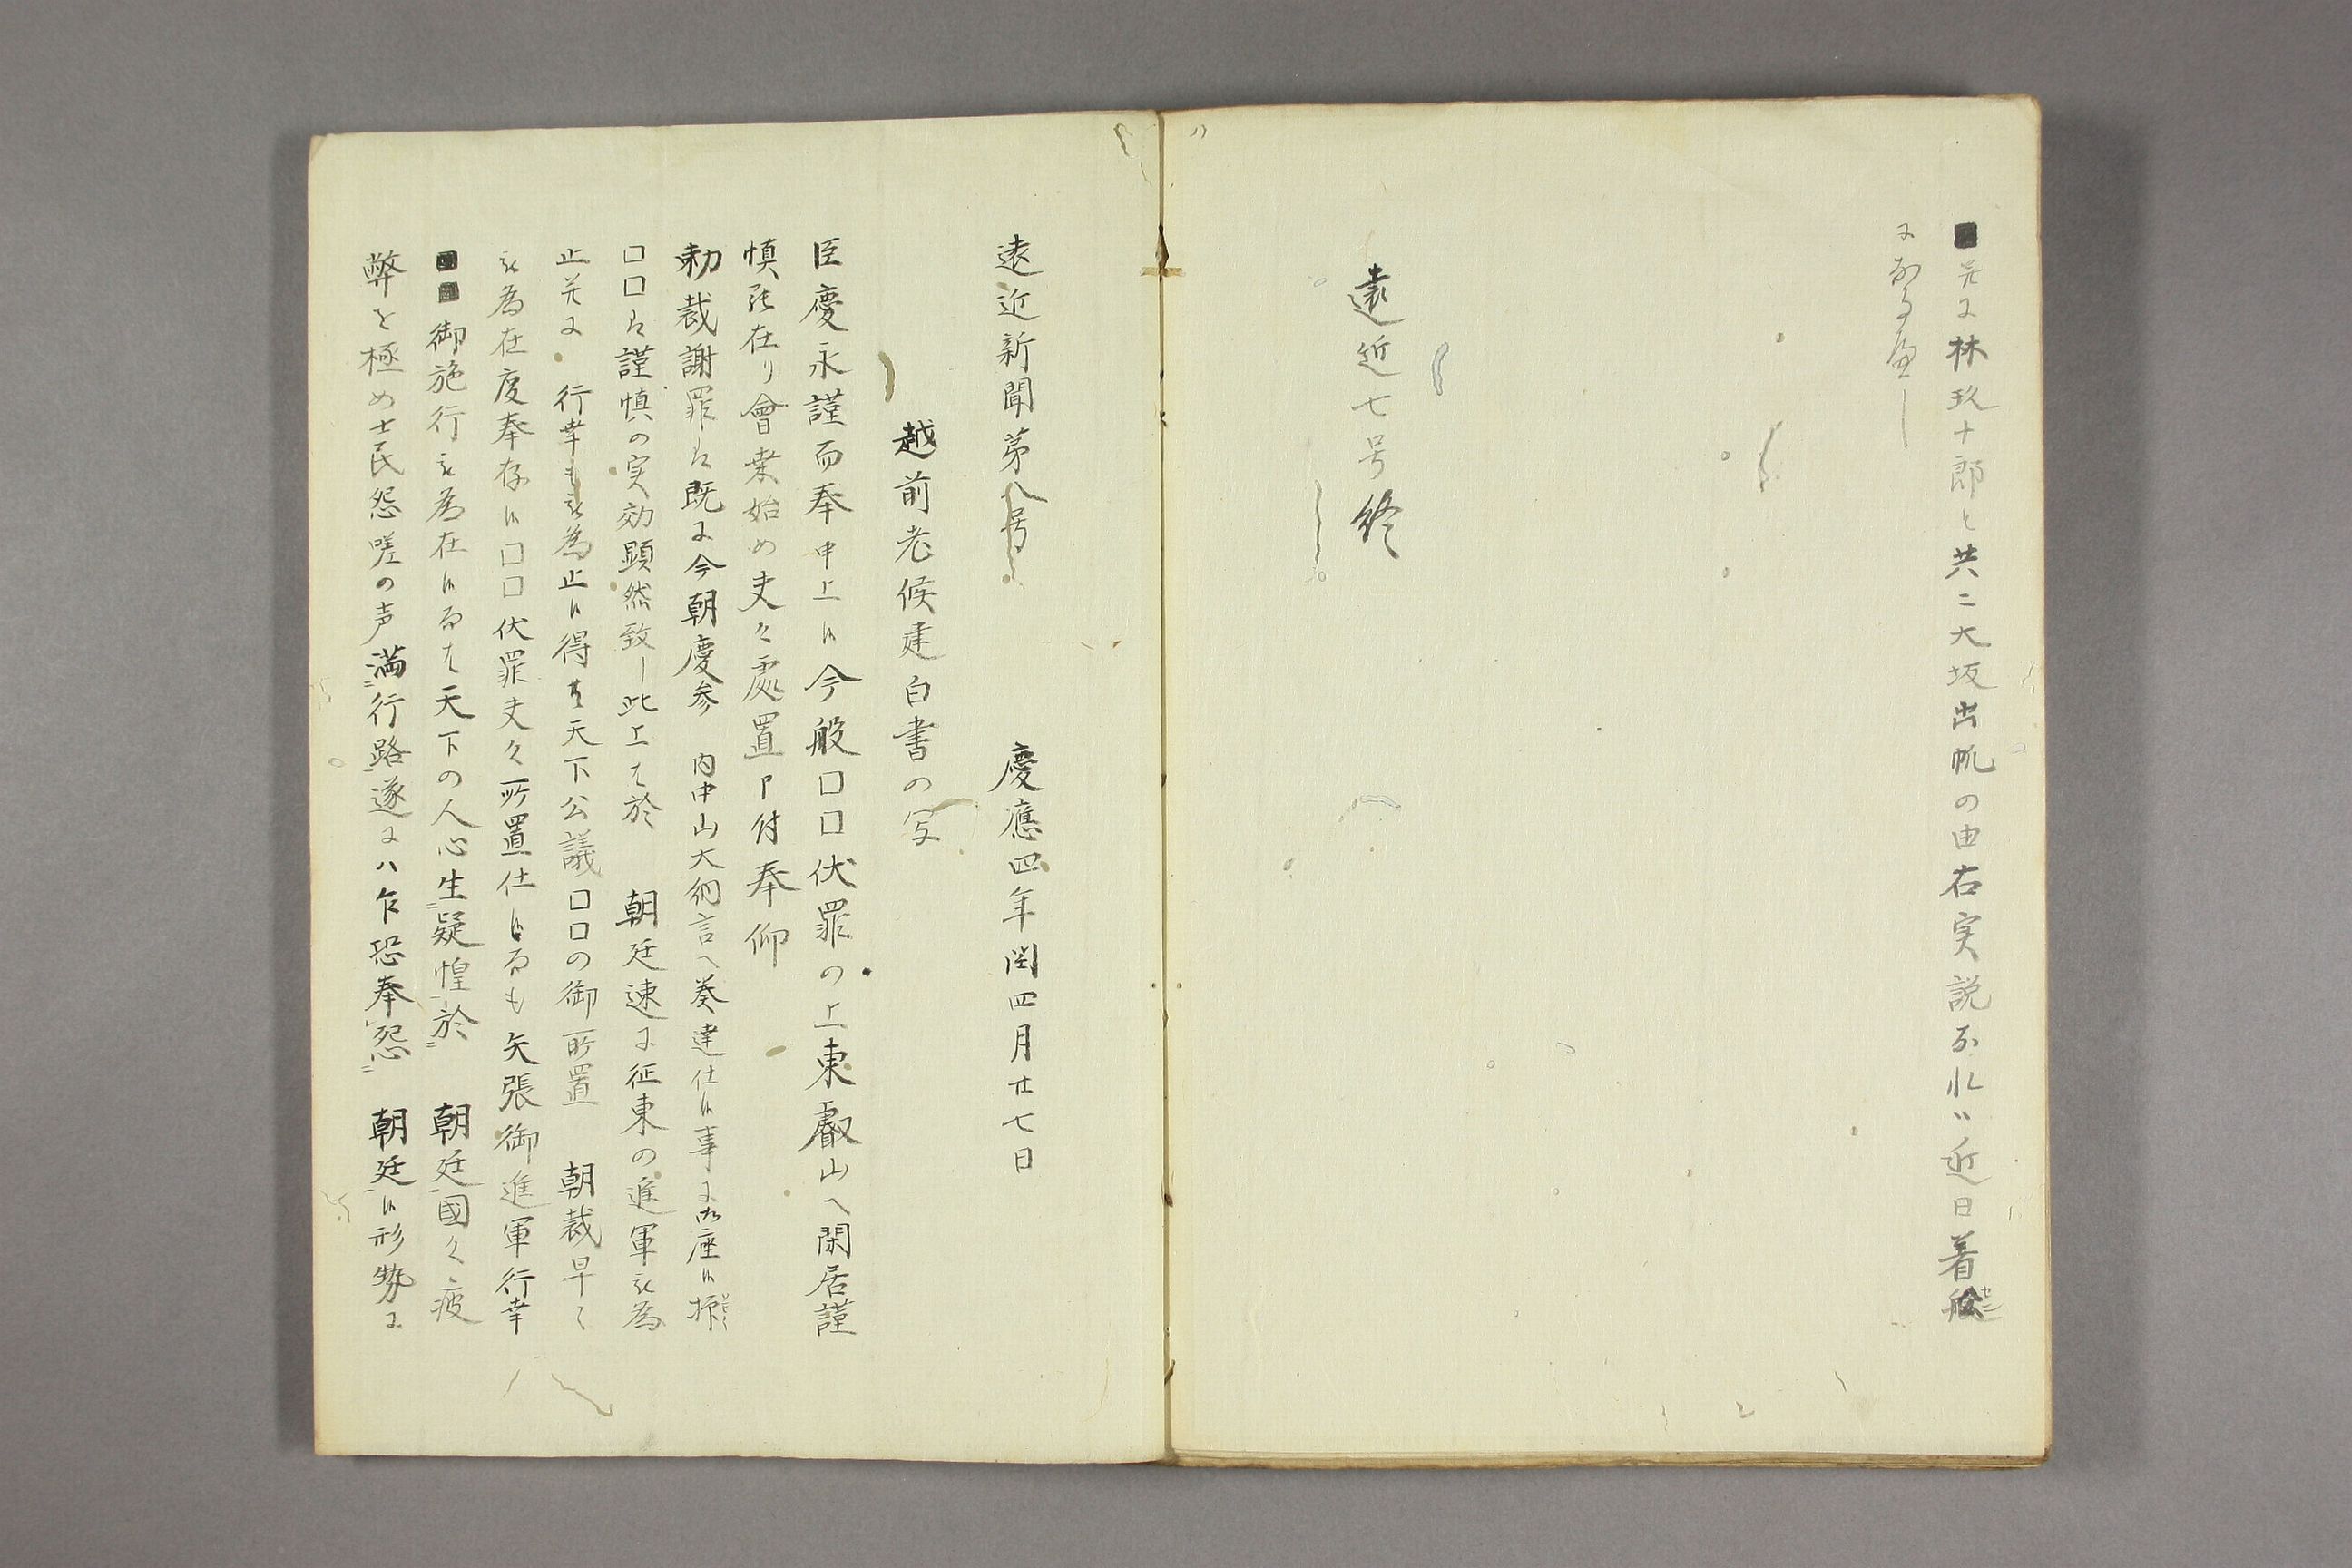 ■先に林玖十郎と共ニ大坂出帆の由右実説なれバ近日着船セシ
になるべし
遠近七号終
遠近新聞第八号 慶應四年閏四月廿七日
越前老候建白書の写
臣慶永謹而奉申上候今般口口伏罪の上東叡山へ閑居謹
慎罷在り會桒始め夫々處置申付奉仰
勅裁謝罪は既に今朝慶参 内中山大納言へ奏達仕候事に御座候抑
口口は謹慎の実効顕然致し此上は於 朝廷速に征東の進軍被為
止先に 行幸も被為止候得は天下公議口口の御所置 朝裁早く
被為在度奉存候口口伏罪夫々所置仕候而も矢張御進軍行幸
■■御施行被為在候而は天下の人心生疑惶於 朝廷國々疲
弊を極め士民怨嗟の声満行路遂にハ乍恐奉怨 朝廷候形勢に